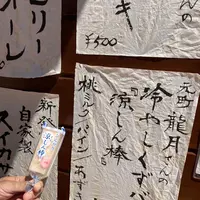 さんの
キ
¥500
元町 龍月さんの
冷やしくずバ
『涼しん棒』
桃ミルク/パイン/あずき
新発
自家製
スイカサ
リー
オーレ
涼しん棒